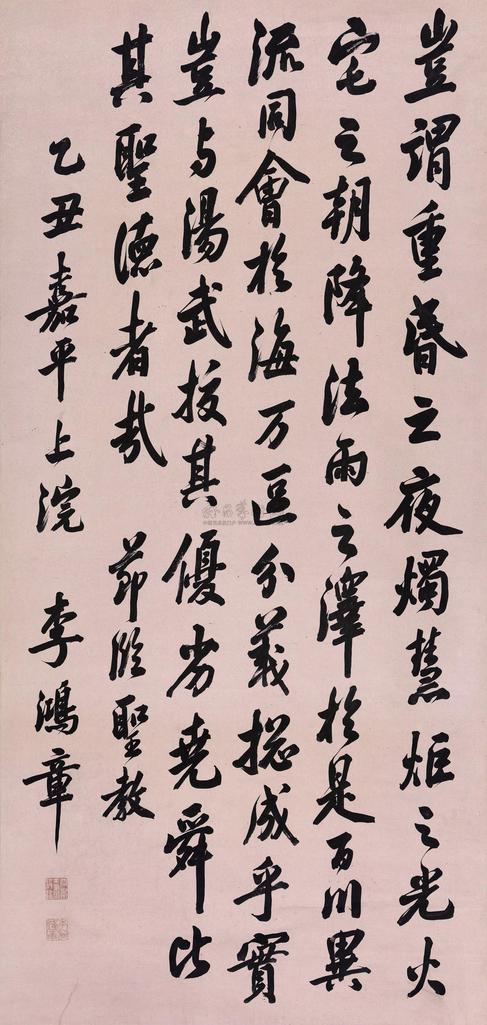 豈謂重昏之夜燭慧炬之光火
宅之朝降法雨之澤於是百川異
流同會於海万區分義揔成乎實
豈与湯武挍其優劣堯舜比
其聖德者哉 節臨聖教
乙丑嘉平上浣 李鴻章